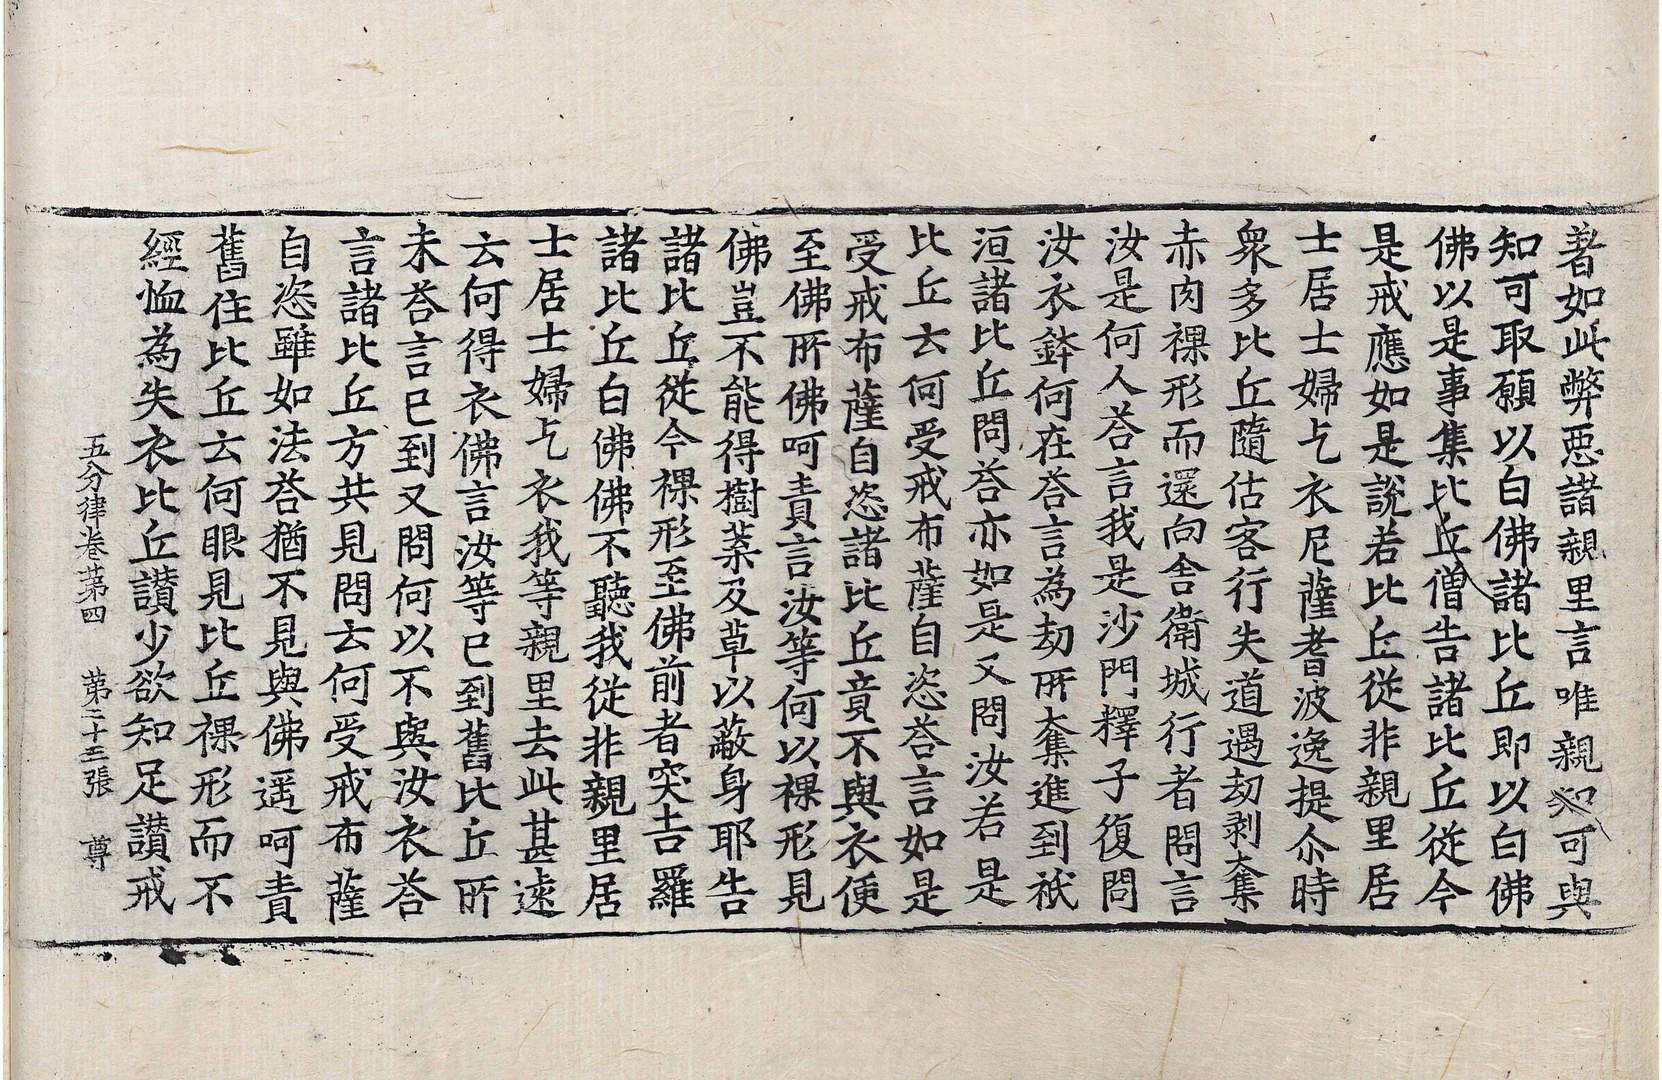 著如此弊惡諸親里言唯親知可與
知可取願以白佛諸比丘即以白佛
佛以是事集比丘僧告諸比丘從今
是戒應如是說若比丘從非親里居
士居士婦乞衣尼薩耆波逸提尒時
衆多比丘隨估客行失道遇刧剥奪
赤肉裸形而還向舍衛城行者問言
汝是何人荅言我是沙門釋子復問
汝衣鉢何在荅言為刧所奪進到祇
洹諸比丘問荅亦如是又問汝若是
比丘云何受戒布薩自恣荅言如是
受戒布薩自恣諸比丘竟不與衣便
至佛所佛呵責言汝等何以裸形見
佛豈不能得樹葉及草以蔽身耶告
諸比丘從今裸形至佛前者突吉羅
諸比丘白佛佛不聽我從非親里居
士居士婦乞衣我等親里去此甚遠
云何得衣佛言汝等已到舊比丘所
未荅言已到又問何以不與汝衣荅
言諸比丘方共見問云何受戒布薩
自恣雖如法荅猶不見與佛遥呵責
舊住比丘云何眼見比丘裸形而不
經恤為失衣比丘讃少欲知足讃戒
五分律卷第四　第二十三張　尊